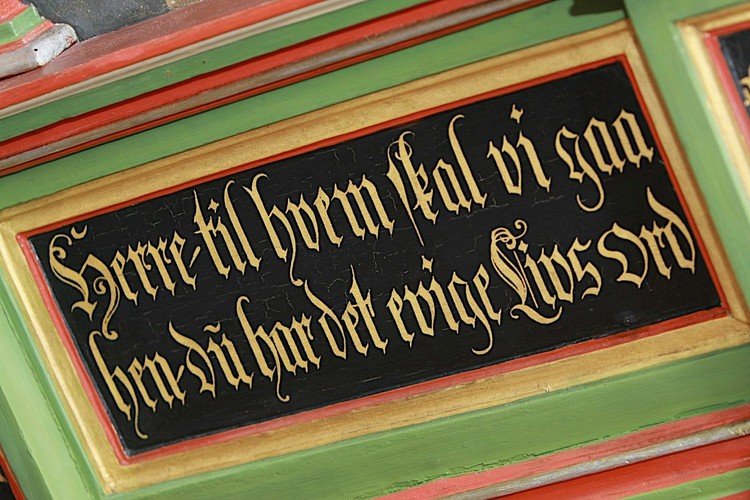 Herre, til hvem skal vi gaa
hen, dũ har det evige Livs Ord